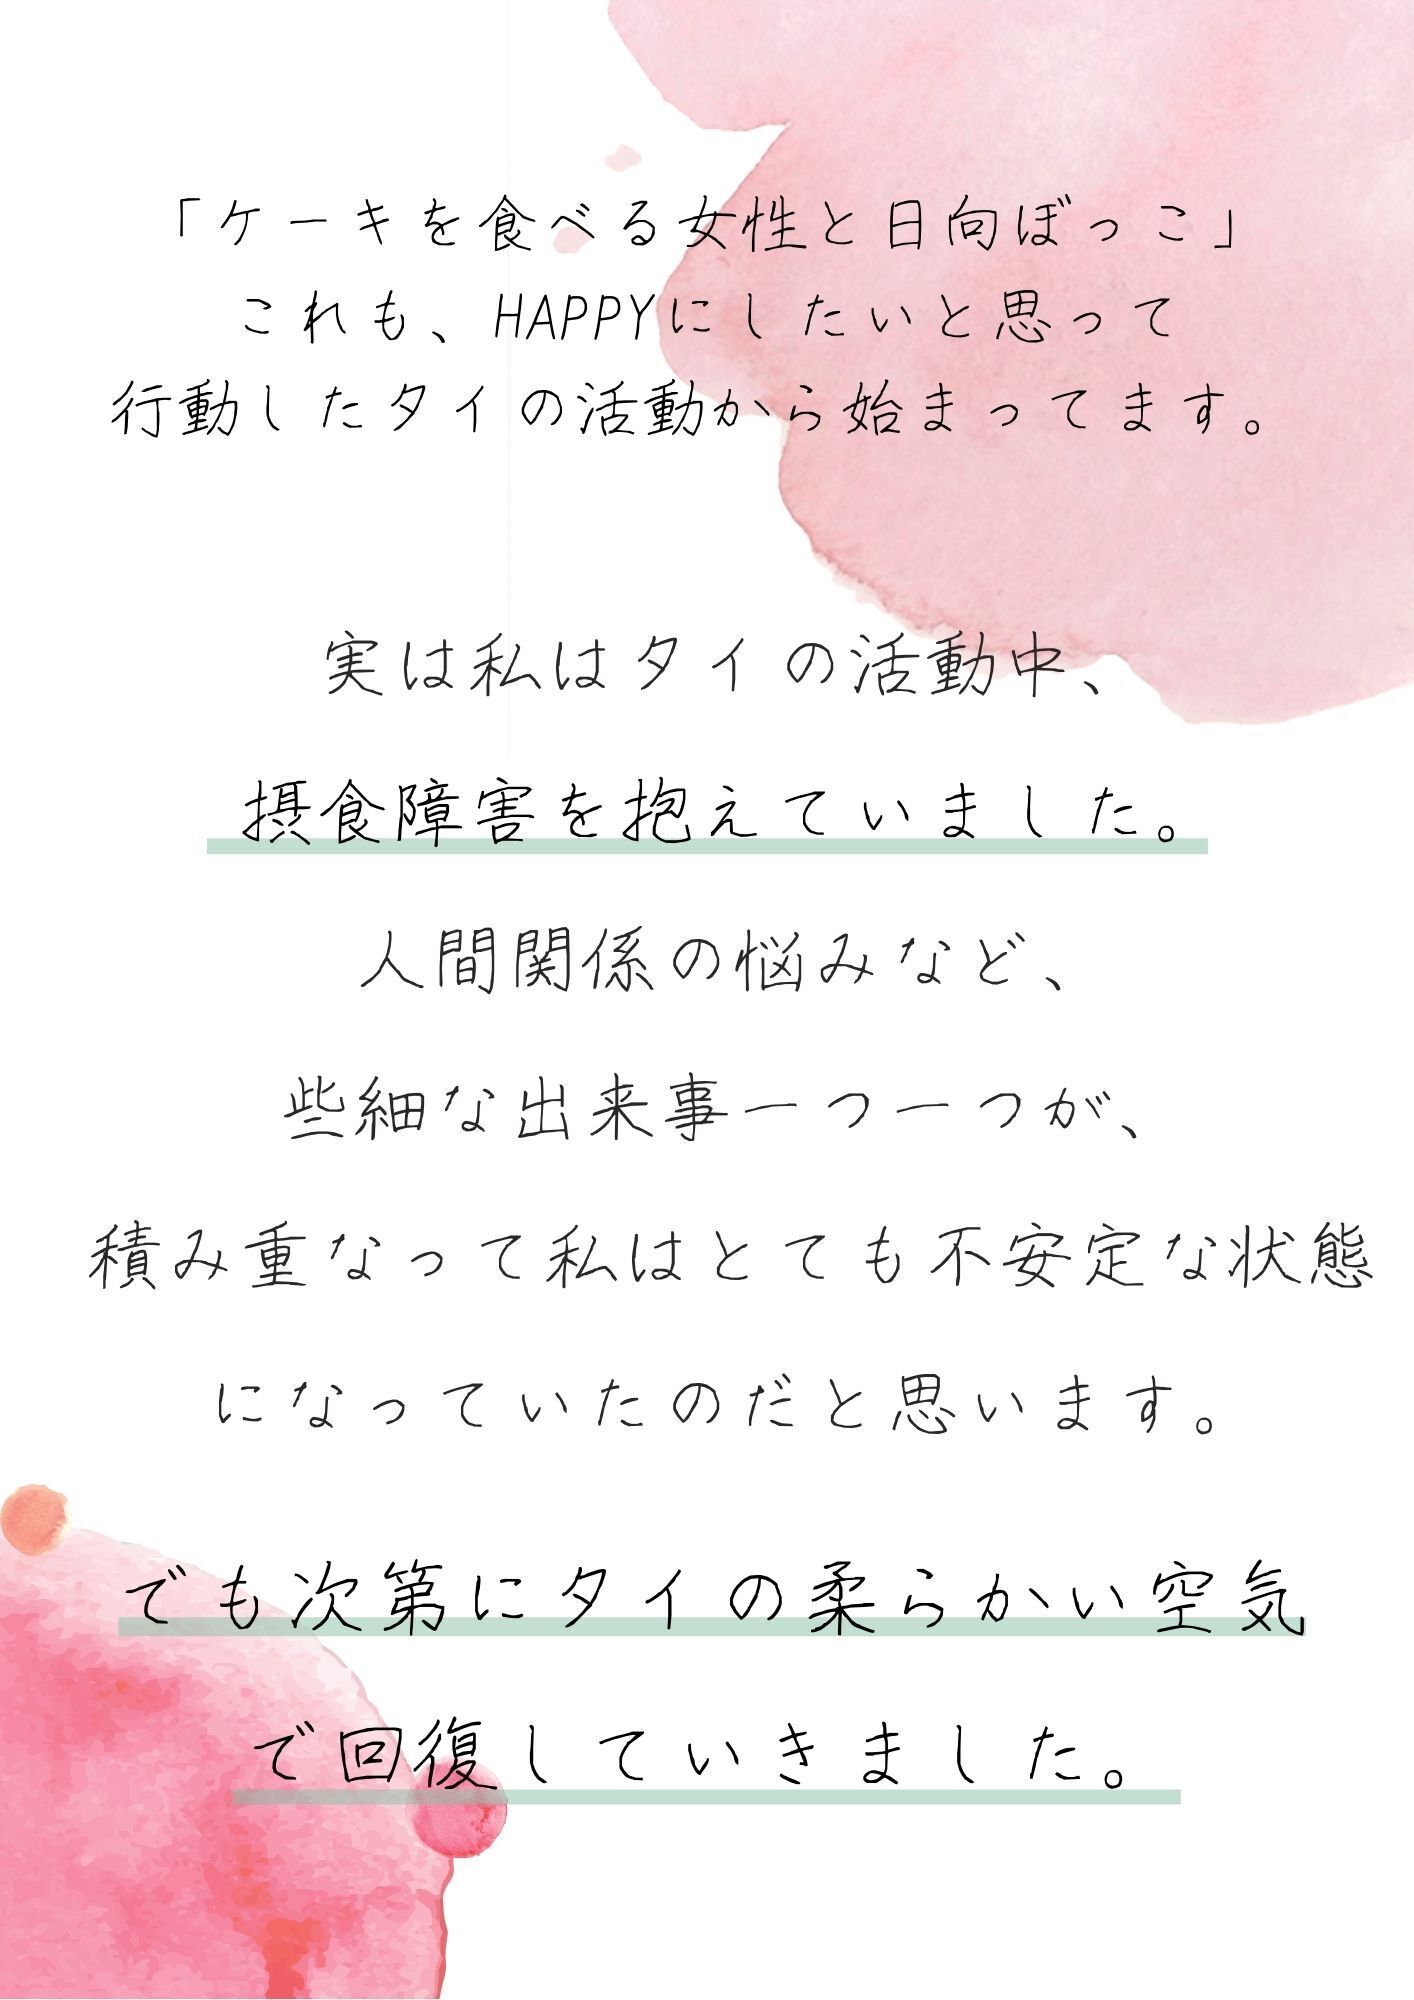 「ケーキを食べる女性と日向ぼっこ」
これも、HAPPYにしたいと思って
行動したタイの活動から始まってます。
実は私はタイの活動中、
摂食障害を抱えていました。
人間関係の悩みなど、
些細な出来事一つ一つが、
積み重なって私はとても不安定な状態
になっていたのだと思います。
でも次第にタイの柔らかい空気
で回復していきました。